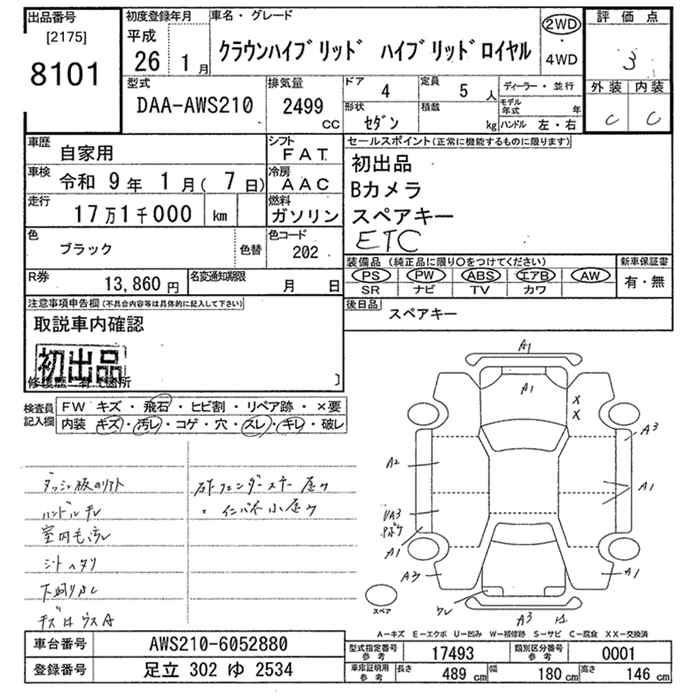 出品番号
[2175]
8101
初度登録年月
平成
26 1月
車名・グレード
クラウンハイブリッド ハイブリッドロイヤル
2WD
・
4WD
評価点
3
外装 内装
C C
型式
DAA-AWS210
排気量
2499
CC
ドア 4
定員 5 人
ディーラー・並行
形状 セダン
積載 kg
モデル年式 年
ハンドル 左・右
車歴 自家用
シフト FAT
車検 令和 9年 1月(7日)
冷房 AAC
走行 17万1千000 km
燃料 ガソリン
色 ブラック
色替
色コード 202
R券 13,860円
名変通知期限 月 日
セールスポイント(正常に機能するものに限ります)
初出品
Bカメラ
スペアキー
ETC
装備品(純正品に限り○をつけてください)
新車保証書
PS PW ABS エアB AW
有・無
SR ナビ TV カワ
後日品
スペアキー
注意事項申告欄(不具合内容等は具体的に記入して下さい)
取説車内確認
初出品
検査員記入欄
FW キズ・飛石・ヒビ割・リペア跡・×要
内装 キズ・汚レ・コゲ・穴・スレ・キレ・破レ
ハンドルスレ
室内モ汚レ
A1
A1
X
X
A3
A2
A1
A3
A1
A3
A1
A3
スペア
A-キズ E-エクボ U-凹み W-補修跡 S-サビ C-腐食 XX-交換済
車台番号 AWS210-6052880
登録番号 足立 302 ゆ 2534
型式指定番号 参考 17493
類別区分番号 参考 0001
車庫証明用 参考 長さ 489 cm 幅 180 cm 高さ 146 cm